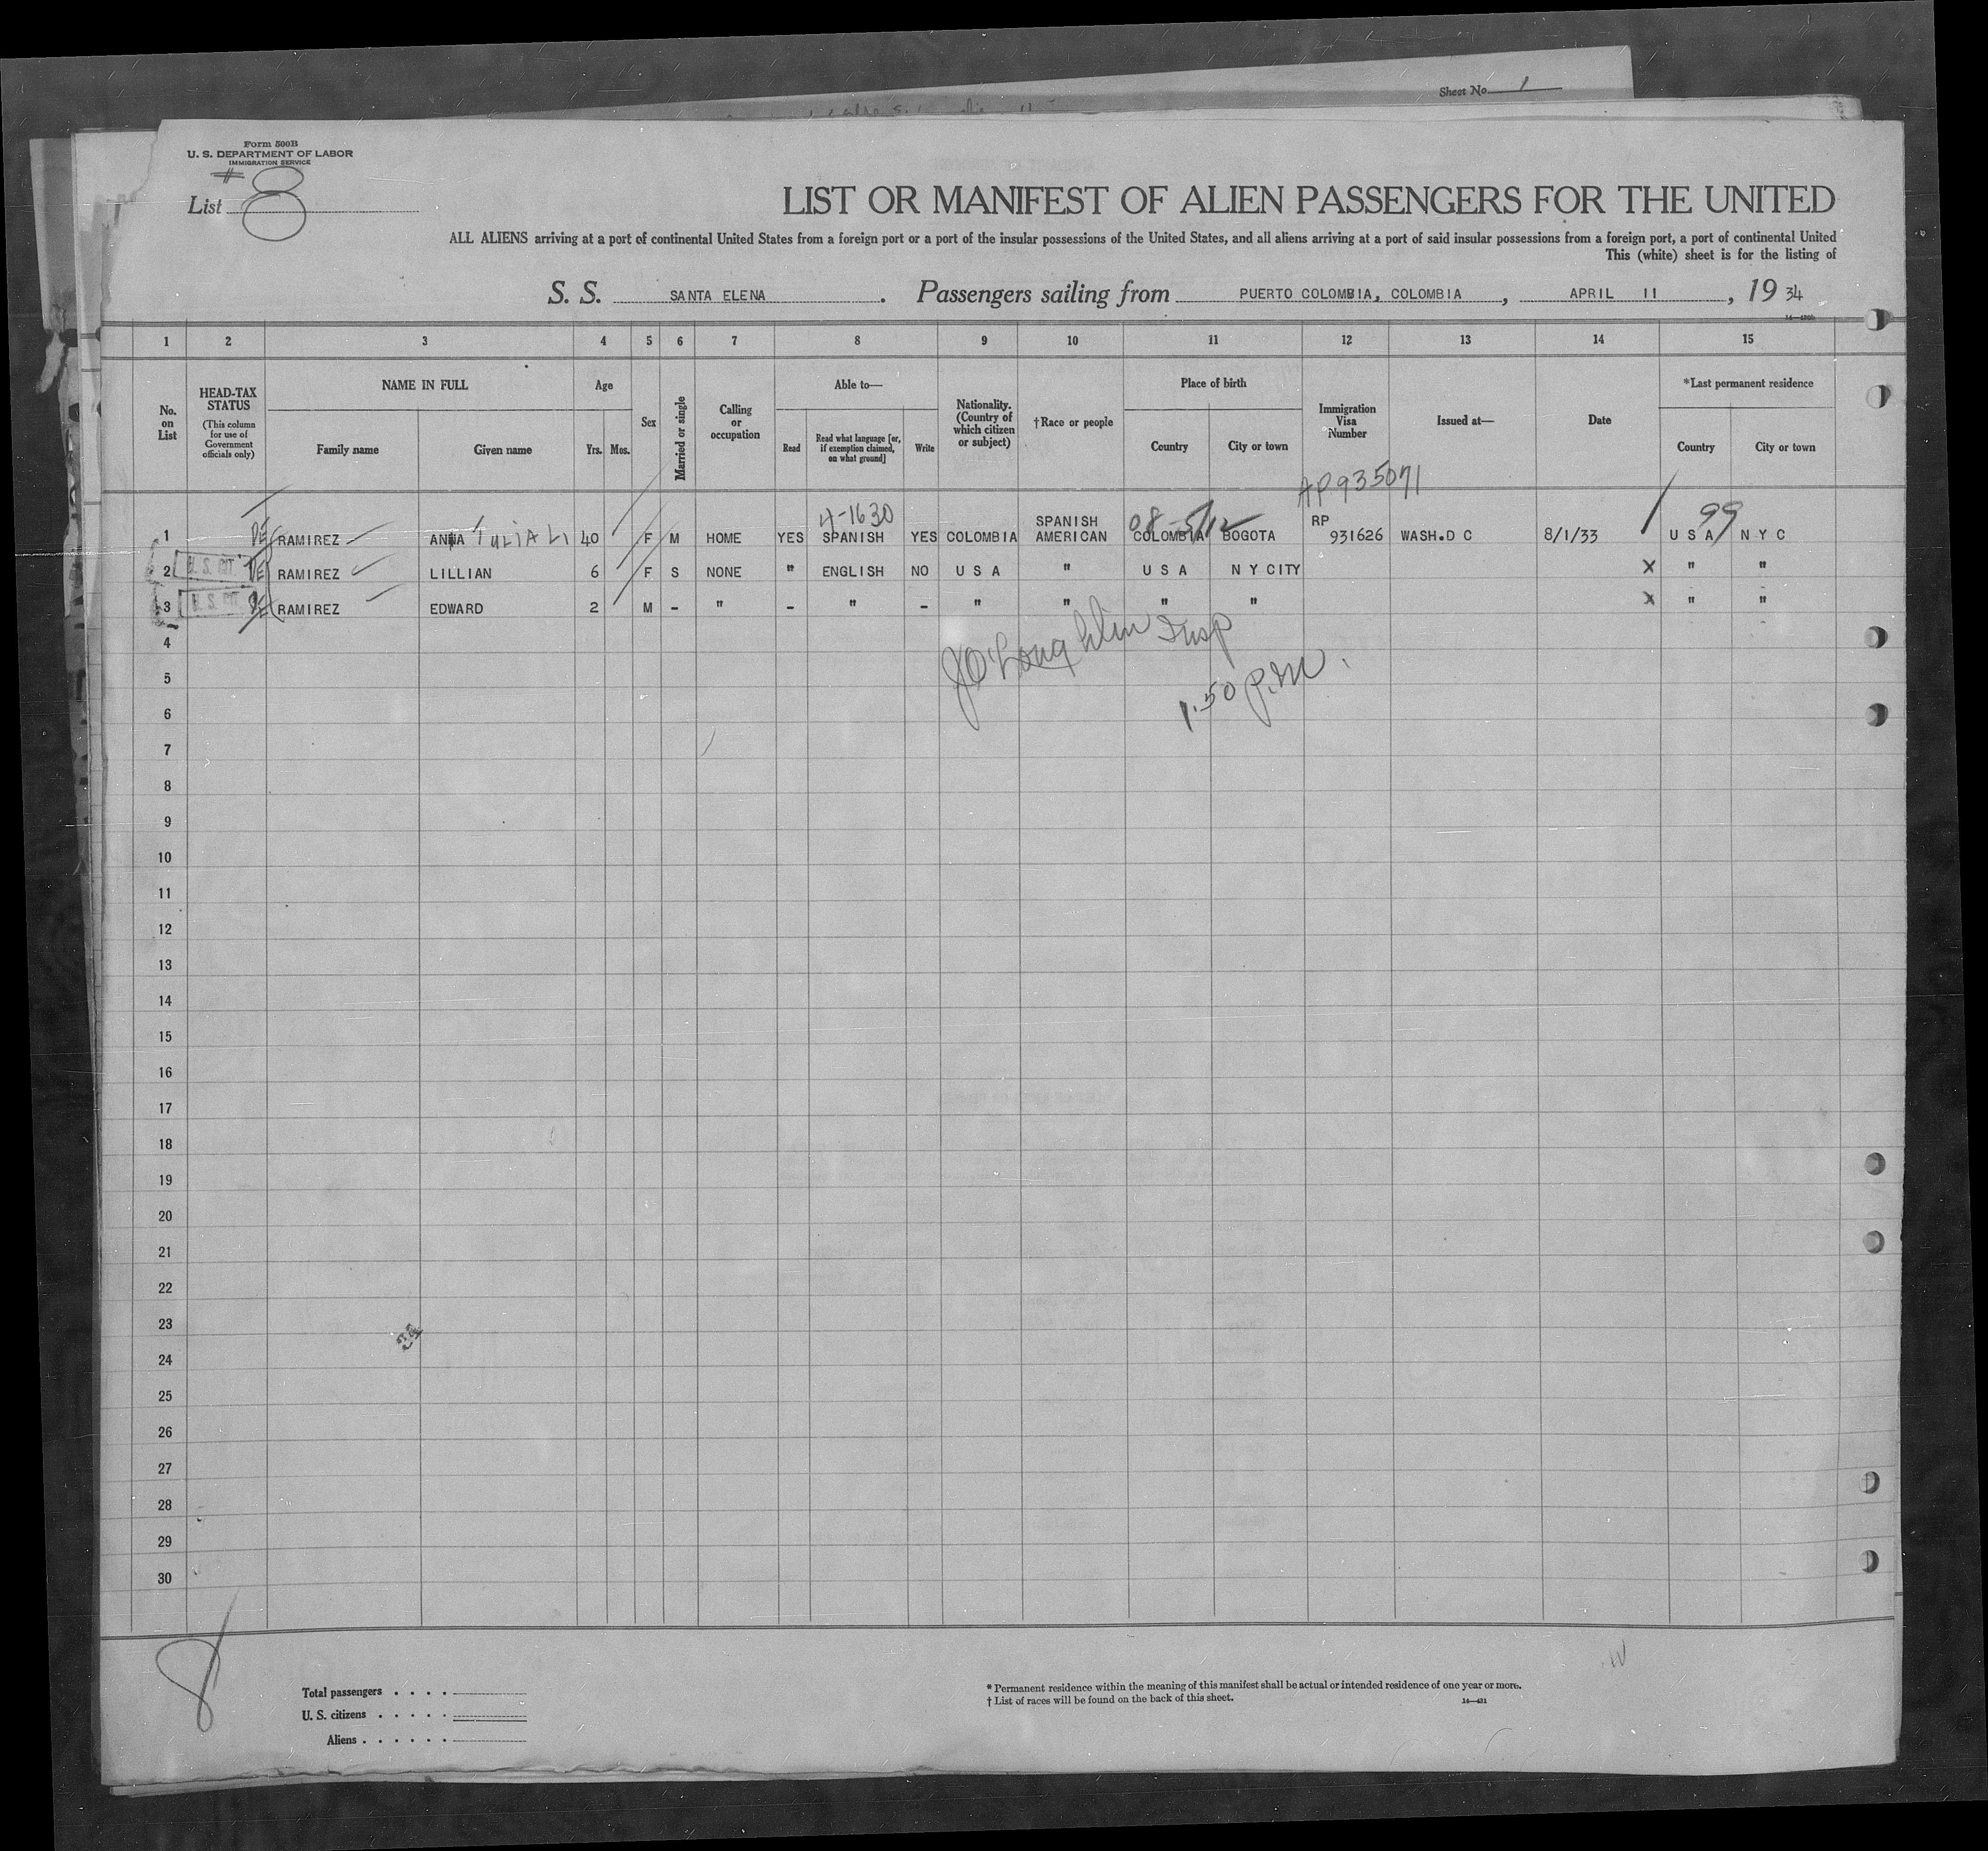 Sheet No 1
Form 500B
U. S. DEPARTMENT OF LABOR
IMMIGRATION SERVICE
# 8
List
LIST OR MANIFEST OF ALIEN PASSENGERS FOR THE UNITED
ALL ALIENS arriving at a port of continental United States from a foreign port or a port of the insular possessions of the United States, and all aliens arriving at a port of said insular possessions from a foreign port, a port of continental United
This (white) sheet is for the listing of
S. S. SANTA ELENA . Passengers sailing from PUERTO COLOMBIA, COLOMBIA , APRIL 11 , 19 34
1 2 3 4 5 6 7 8 9 10 11 12 13 14 15
No. on List
HEAD-TAX STATUS
(This column for use of Government officials only)
NAME IN FULL
Family name
Given name
Age
Yrs. Mos.
Sex
Married or single
Calling or occupation
Able to—
Read
Read what language [or, if exemption claimed, on what ground]
Write
Nationality. (Country of which citizen or subject)
†Race or people
Place of birth
Country
City or town
Immigration Visa Number
Issued at—
Date
*Last permanent residence
Country
City or town
AP935071
4-1630
99
1 RAMIREZ ANNA 40 F M HOME YES SPANISH YES COLOMBIA SPANISH AMERICAN COLOMBIA BOGOTA RP 931626 WASH.D C 8/1/33 U S A N Y C
2 U. S. CIT. RAMIREZ LILLIAN 6 F S NONE " ENGLISH NO U S A " U S A N Y CITY X " "
3 U. S. CIT. RAMIREZ EDWARD 2 M - " - " - " " " " X " "
4
JO'Loughlin Insp
5
1.50 P.M.
6
7
8
9
10
11
12
13
14
15
16
17
18
19
20
21
22
23
24
25
26
27
28
29
30
8
Total passengers . . . .
U. S. citizens . . . . .
Aliens . . . . . .
* Permanent residence within the meaning of this manifest shall be actual or intended residence of one year or more.
† List of races will be found on the back of this sheet.
14—431